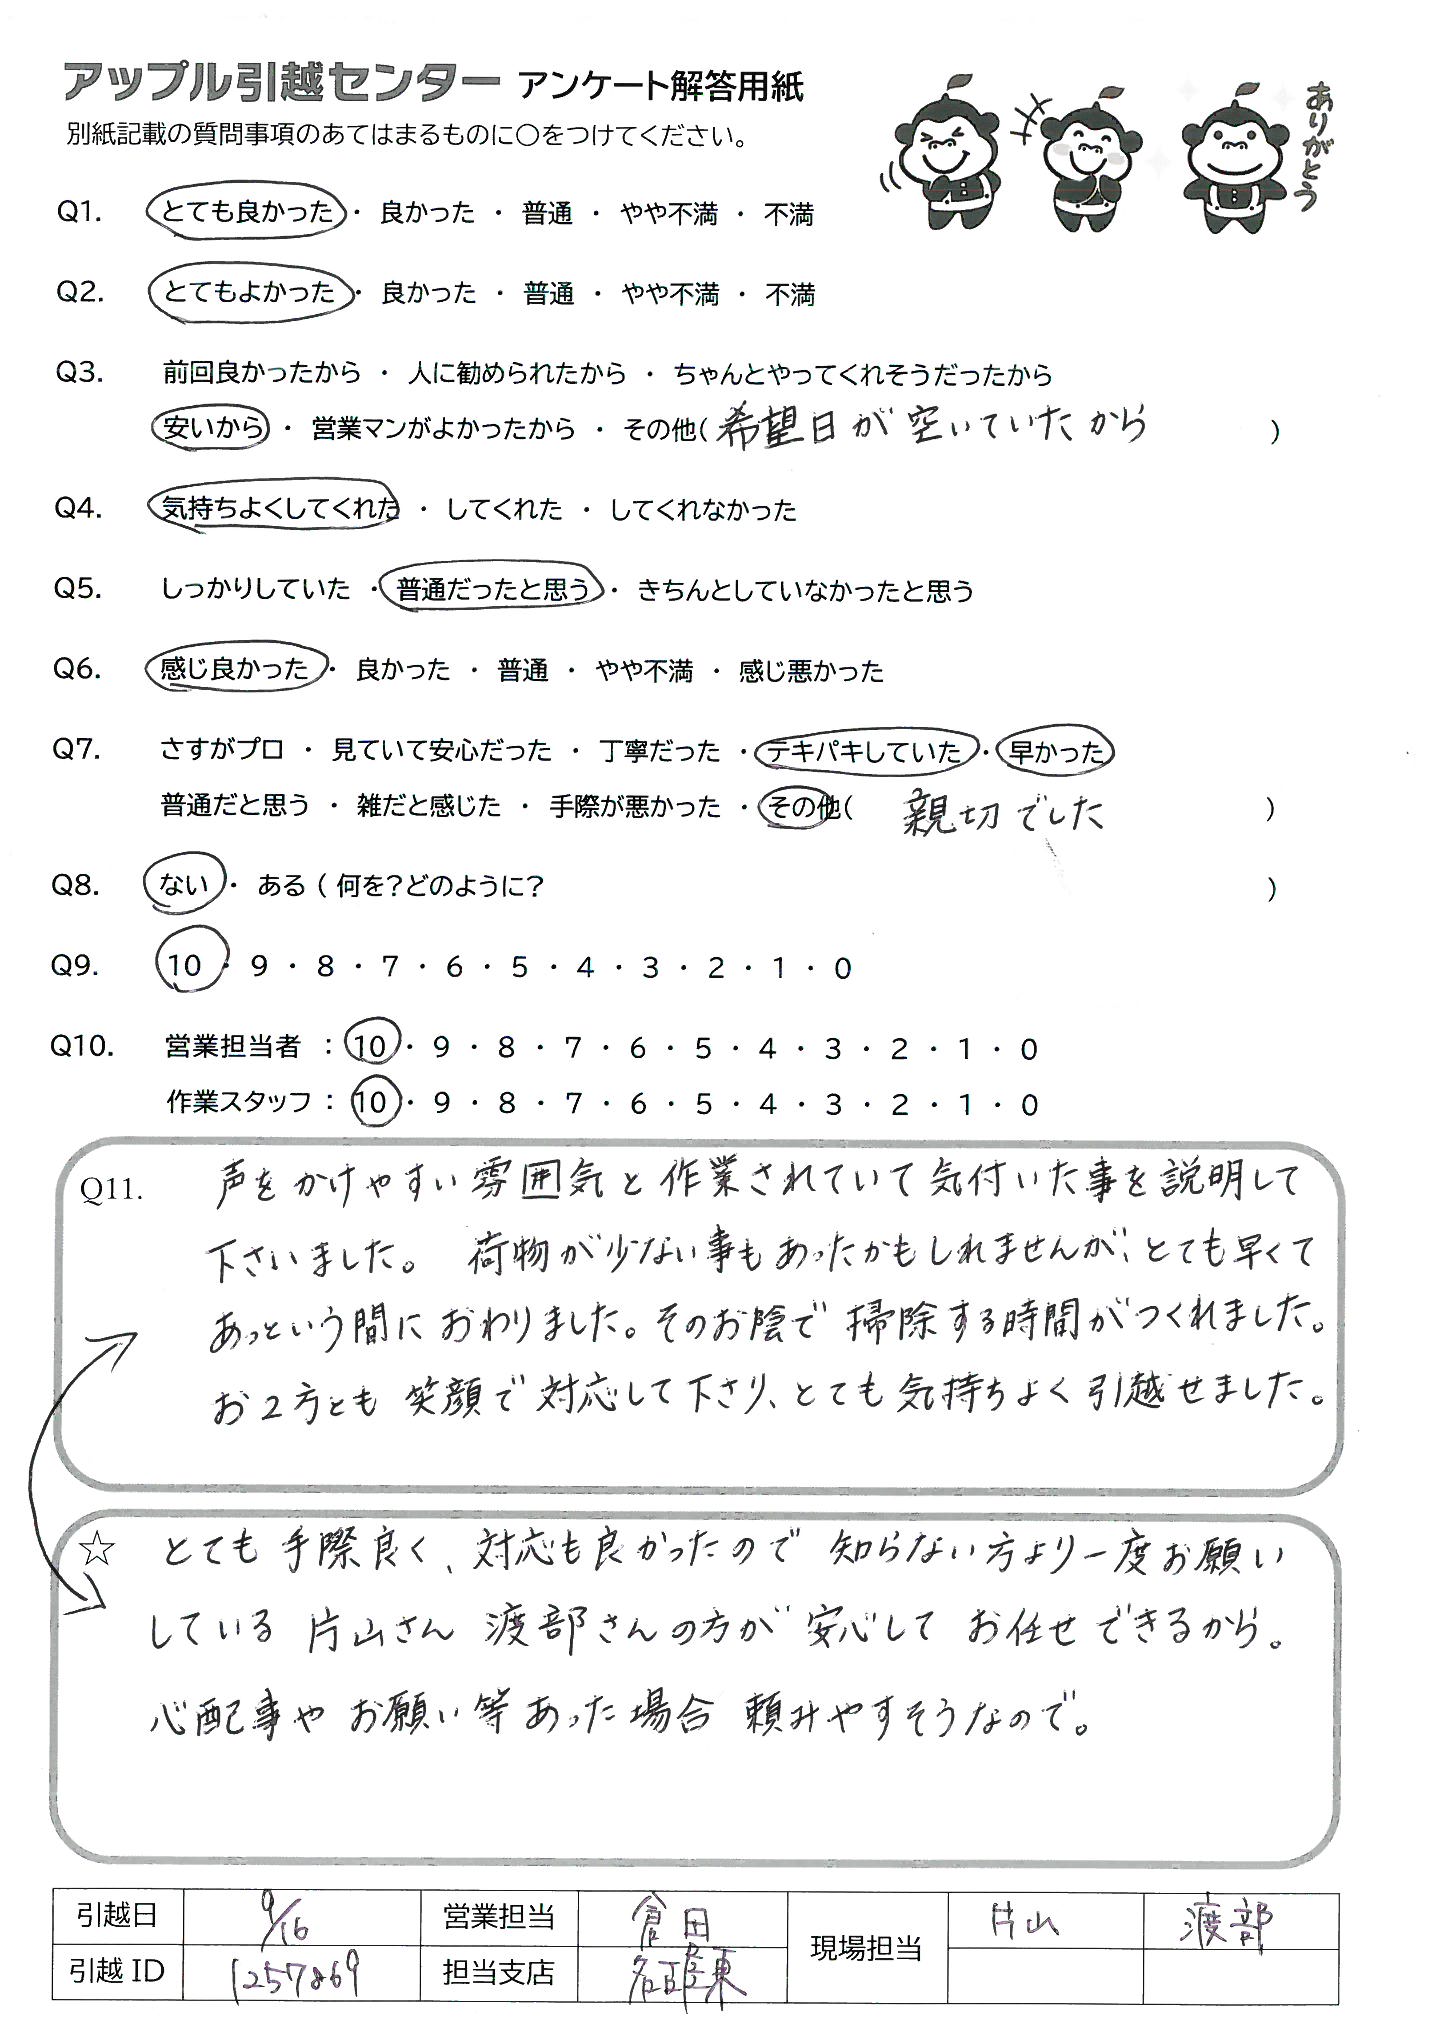 アップル引越センター アンケート解答用紙
別紙記載の質問事項のあてはまるものに〇をつけてください。
ありがとう
Q1. とても良かった ・ 良かった ・ 普通 ・ やや不満 ・ 不満
Q2. とてもよかった ・ 良かった ・ 普通 ・ やや不満 ・ 不満
Q3. 前回良かったから ・ 人に勧められたから ・ ちゃんとやってくれそうだったから
安いから ・ 営業マンがよかったから ・ その他( 希望日が空いていたから )
Q4. 気持ちよくしてくれた ・ してくれた ・ してくれなかった
Q5. しっかりしていた ・ 普通だったと思う ・ きちんとしていなかったと思う
Q6. 感じ良かった ・ 良かった ・ 普通 ・ やや不満 ・ 感じ悪かった
Q7. さすがプロ ・ 見ていて安心だった ・ 丁寧だった ・ テキパキしていた ・ 早かった
普通だと思う ・ 雑だと感じた ・ 手際が悪かった ・ その他( 親切でした )
Q8. ない ・ ある ( 何を?どのように? )
Q9. 10 ・ 9 ・ 8 ・ 7 ・ 6 ・ 5 ・ 4 ・ 3 ・ 2 ・ 1 ・ 0
Q10. 営業担当者 : 10 ・ 9 ・ 8 ・ 7 ・ 6 ・ 5 ・ 4 ・ 3 ・ 2 ・ 1 ・ 0
作業スタッフ : 10 ・ 9 ・ 8 ・ 7 ・ 6 ・ 5 ・ 4 ・ 3 ・ 2 ・ 1 ・ 0
Q11. 声をかけやすい雰囲気と作業されていて気付いた事を説明して
下さいました。 荷物が少ない事もあったかもしれませんが、とても早くて
あっという間におわりました。そのお陰で掃除する時間がつくれました。
お2方とも笑顔で対応して下さり、とても気持ちよく引越せました。
☆ とても手際良く、対応も良かったので知らない方より一度お願い
している片山さん 渡部さんの方が安心してお任せできるから。
心配事やお願い等あった場合頼みやすそうなので。
引越日 9/16 営業担当 倉田 現場担当 片山 渡部
引越ID 1257869 担当支店 名古屋東